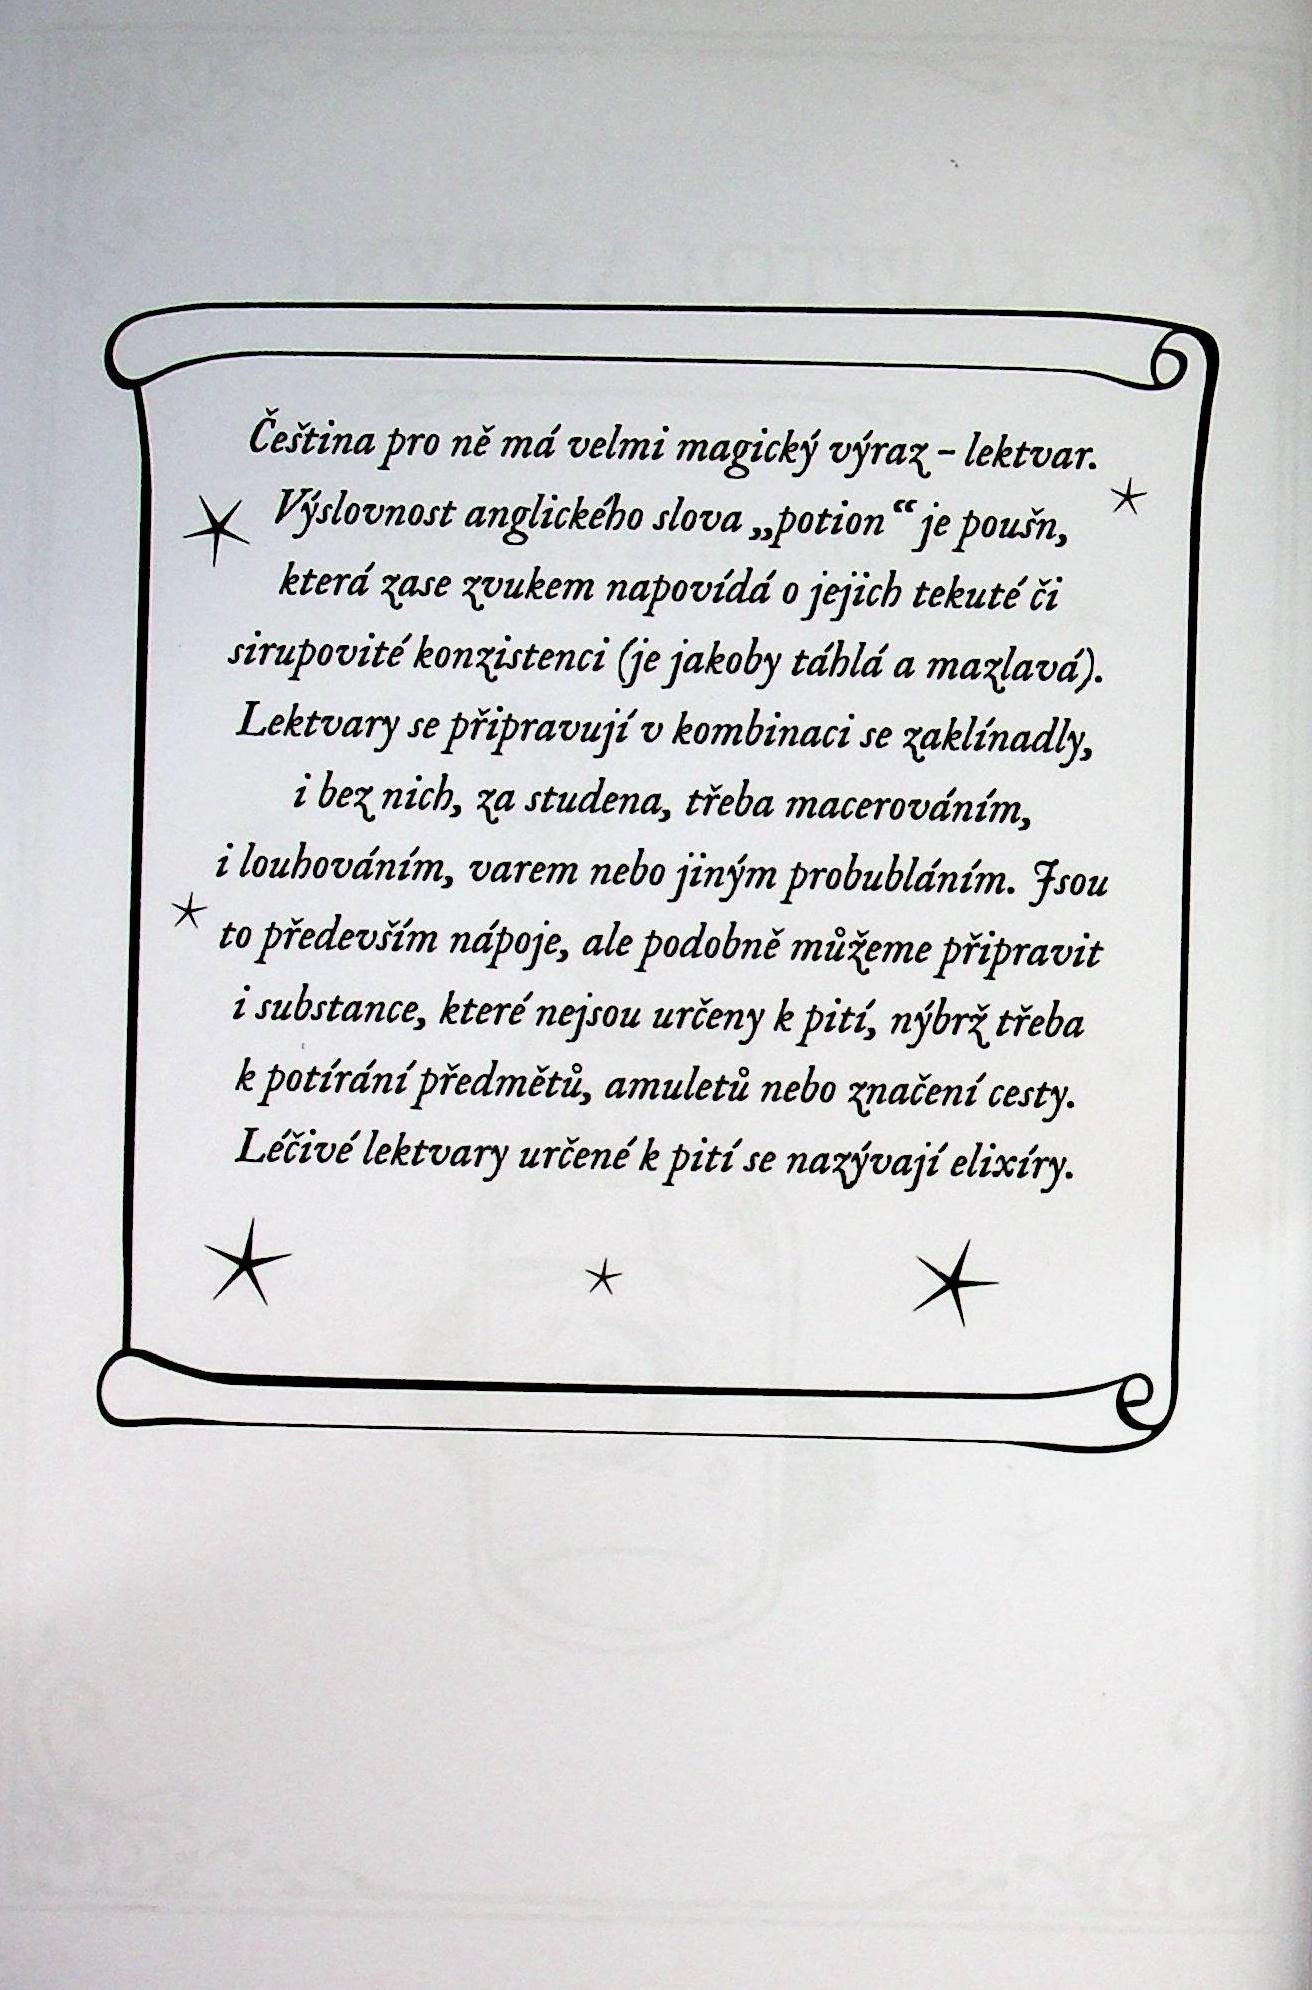 Čeština pro ně má velmi magický výraz – lektvar.
Výslovnost anglického slova „potion“ je poušn,
která zase zvukem napovídá o jejich tekuté či
sirupovité konzistenci (je jakoby táhlá a mazlavá).
Lektvary se připravují v kombinaci se zaklínadly,
i bez nich, za studena, třeba macerováním,
i louhováním, varem nebo jiným probubláním. Jsou
to především nápoje, ale podobně můžeme připravit
i substance, které nejsou určeny k pití, nýbrž třeba
k potírání předmětů, amuletů nebo značení cesty.
Léčivé lektvary určené k pití se nazývají elixíry.